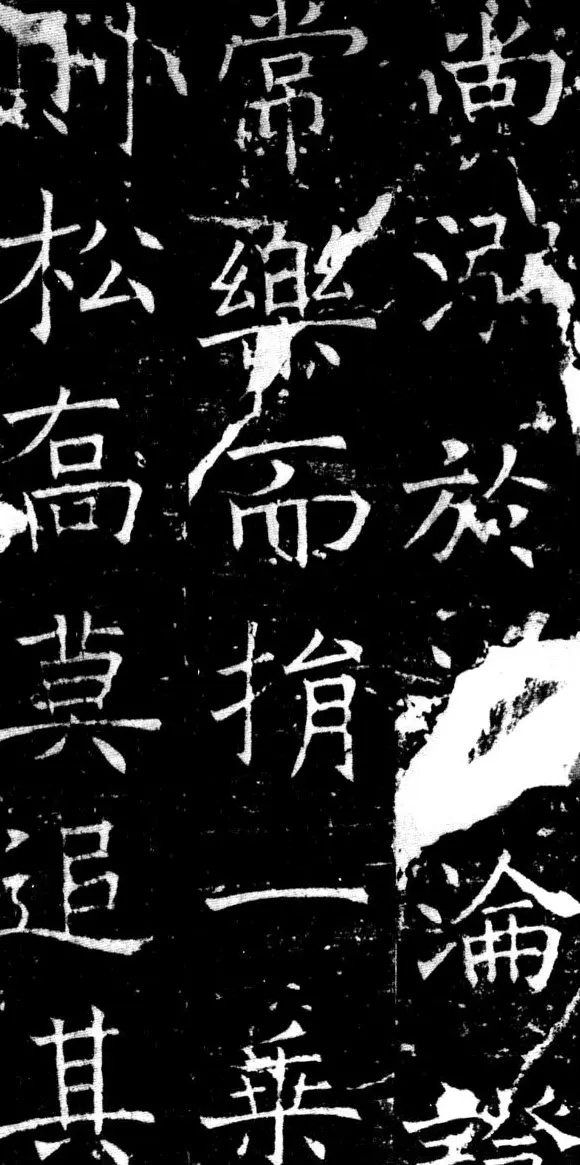 尚於淪證
常樂而捐一乘
松喬莫追其